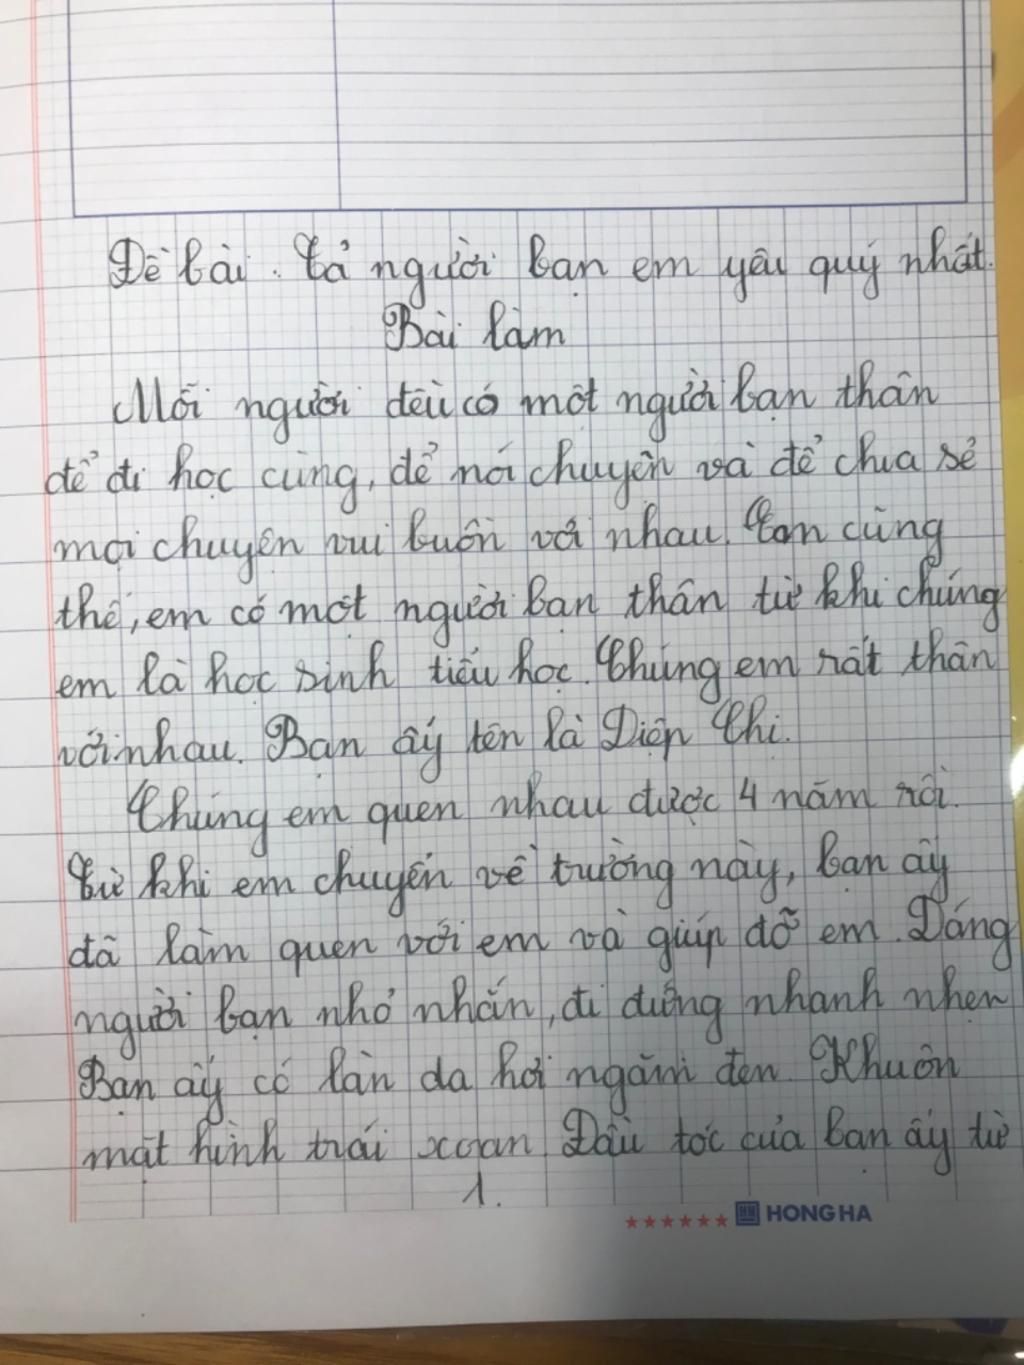 Đề bài. Tả người bạn em yêu quý nhất.
Bài làm
Mỗi người đều có một người bạn thân
để đi học cùng, để nói chuyện và để chia sẻ
mọi chuyện vui buồn với nhau. Em cũng
thế, em có một người bạn thân từ khi chúng
em là học sinh tiểu học. Chúng em rất thân
với nhau. Bạn ấy tên là Diệp Chi.
Chúng em quen nhau được 4 năm rồi.
Từ khi em chuyển về trường này, bạn ấy
đã làm quen với em và giúp đỡ em. Dáng
người bạn nhỏ nhắn, đi đứng nhanh nhẹn
Bạn ấy có làn da hơi ngăm đen. Khuôn
mặt hình trái xoan. Đầu tóc của bạn ấy từ
1.
HONG HA